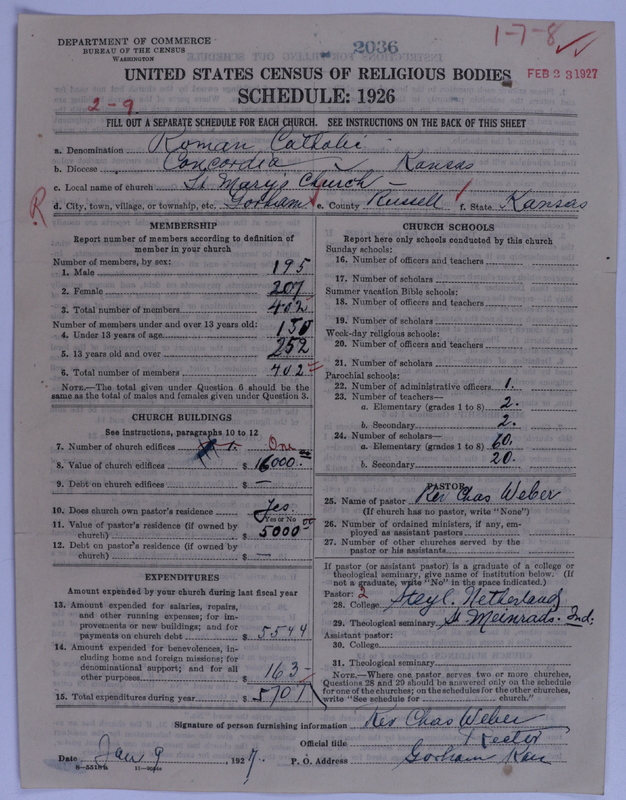 DEPARTMENT OF COMMERCE
BUREAU OF THE CENSUS
WASHINGTON
2036
1-7-8
UNITED STATES CENSUS OF RELIGIOUS BODIES
FEB 23 1927
SCHEDULE: 1926
2-9
FILL OUT A SEPARATE SCHEDULE FOR EACH CHURCH. SEE INSTRUCTIONS ON THE BACK OF THIS SHEET
a. Denomination Roman Catholic
b. Diocese Concordia Kansas
c. Local name of church St Mary's Church
R
d. City, town, village, or township, etc. Gorham e. County Russell f. State Kansas
MEMBERSHIP
Report number of members according to definition of
member in your church
Number of members, by sex:
1. Male 195
2. Female 207
3. Total number of members 402
Number of members under and over 13 years old:
4. Under 13 years of age 150
5. 13 years old and over 252
6. Total number of members 402
NOTE.—The total given under Question 6 should be the
same as the total of males and females given under Question 3.
CHURCH BUILDINGS
See instructions, paragraphs 10 to 12
7. Number of church edifices One
8. Value of church edifices $ 16000.00
9. Debt on church edifices $ —
10. Does church own pastor's residence Yes.
Yes or No
11. Value of pastor's residence (if owned by
church) $ 5000 00
12. Debt on pastor's residence (if owned by
church) $ —
EXPENDITURES
Amount expended by your church during last fiscal year
13. Amount expended for salaries, repairs,
and other running expenses; for im-
provements or new buildings; and for
payments on church debt $ 5544
14. Amount expended for benevolences, in-
cluding home and foreign missions; for
denominational support; and for all
other purposes $ 163-
15. Total expenditures during year $ 5707
CHURCH SCHOOLS
Report here only schools conducted by this church
Sunday schools:
16. Number of officers and teachers
17. Number of scholars
Summer vacation Bible schools:
18. Number of officers and teachers
19. Number of scholars
Week-day religious schools:
20. Number of officers and teachers
21. Number of scholars
Parochial schools:
22. Number of administrative officers 1.
23. Number of teachers—
a. Elementary (grades 1 to 8) 2.
b. Secondary 2.
24. Number of scholars—
a. Elementary (grades 1 to 8) 60.
b. Secondary 20.
PASTOR
25. Name of pastor Rev Chas Weber
(If church has no pastor, write "None")
26. Number of ordained ministers, if any, em-
ployed as assistant pastors
27. Number of other churches served by the
pastor or his assistants
If pastor (or assistant pastor) is a graduate of a college or
theological seminary, give name of institution below. (If
not a graduate, write "No" in the space indicated.)
Pastor: 2
28. College Steyl. Netherland
29. Theological seminary St Meinrads. Ind.
Assistant pastor:
30. College
31. Theological seminary
NOTE.—Where one pastor serves two or more churches,
Questions 28 and 29 should be answered only on the schedule
for one of the churches; on the schedules for the other churches,
write "See schedule for church."
Signature of person furnishing information Rev Chas Weber
Official title Rector
Date Jan 9, 1927. P. O. Address Gorham Kans